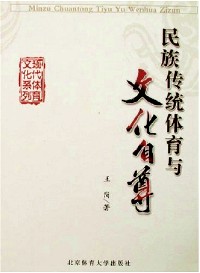 Minzu Chuantong Tiyu Yu Wenhua Zizun
民族传统体育与
文化自尊
现代体育
文化系列
王岗/著
北京体育大学出版社